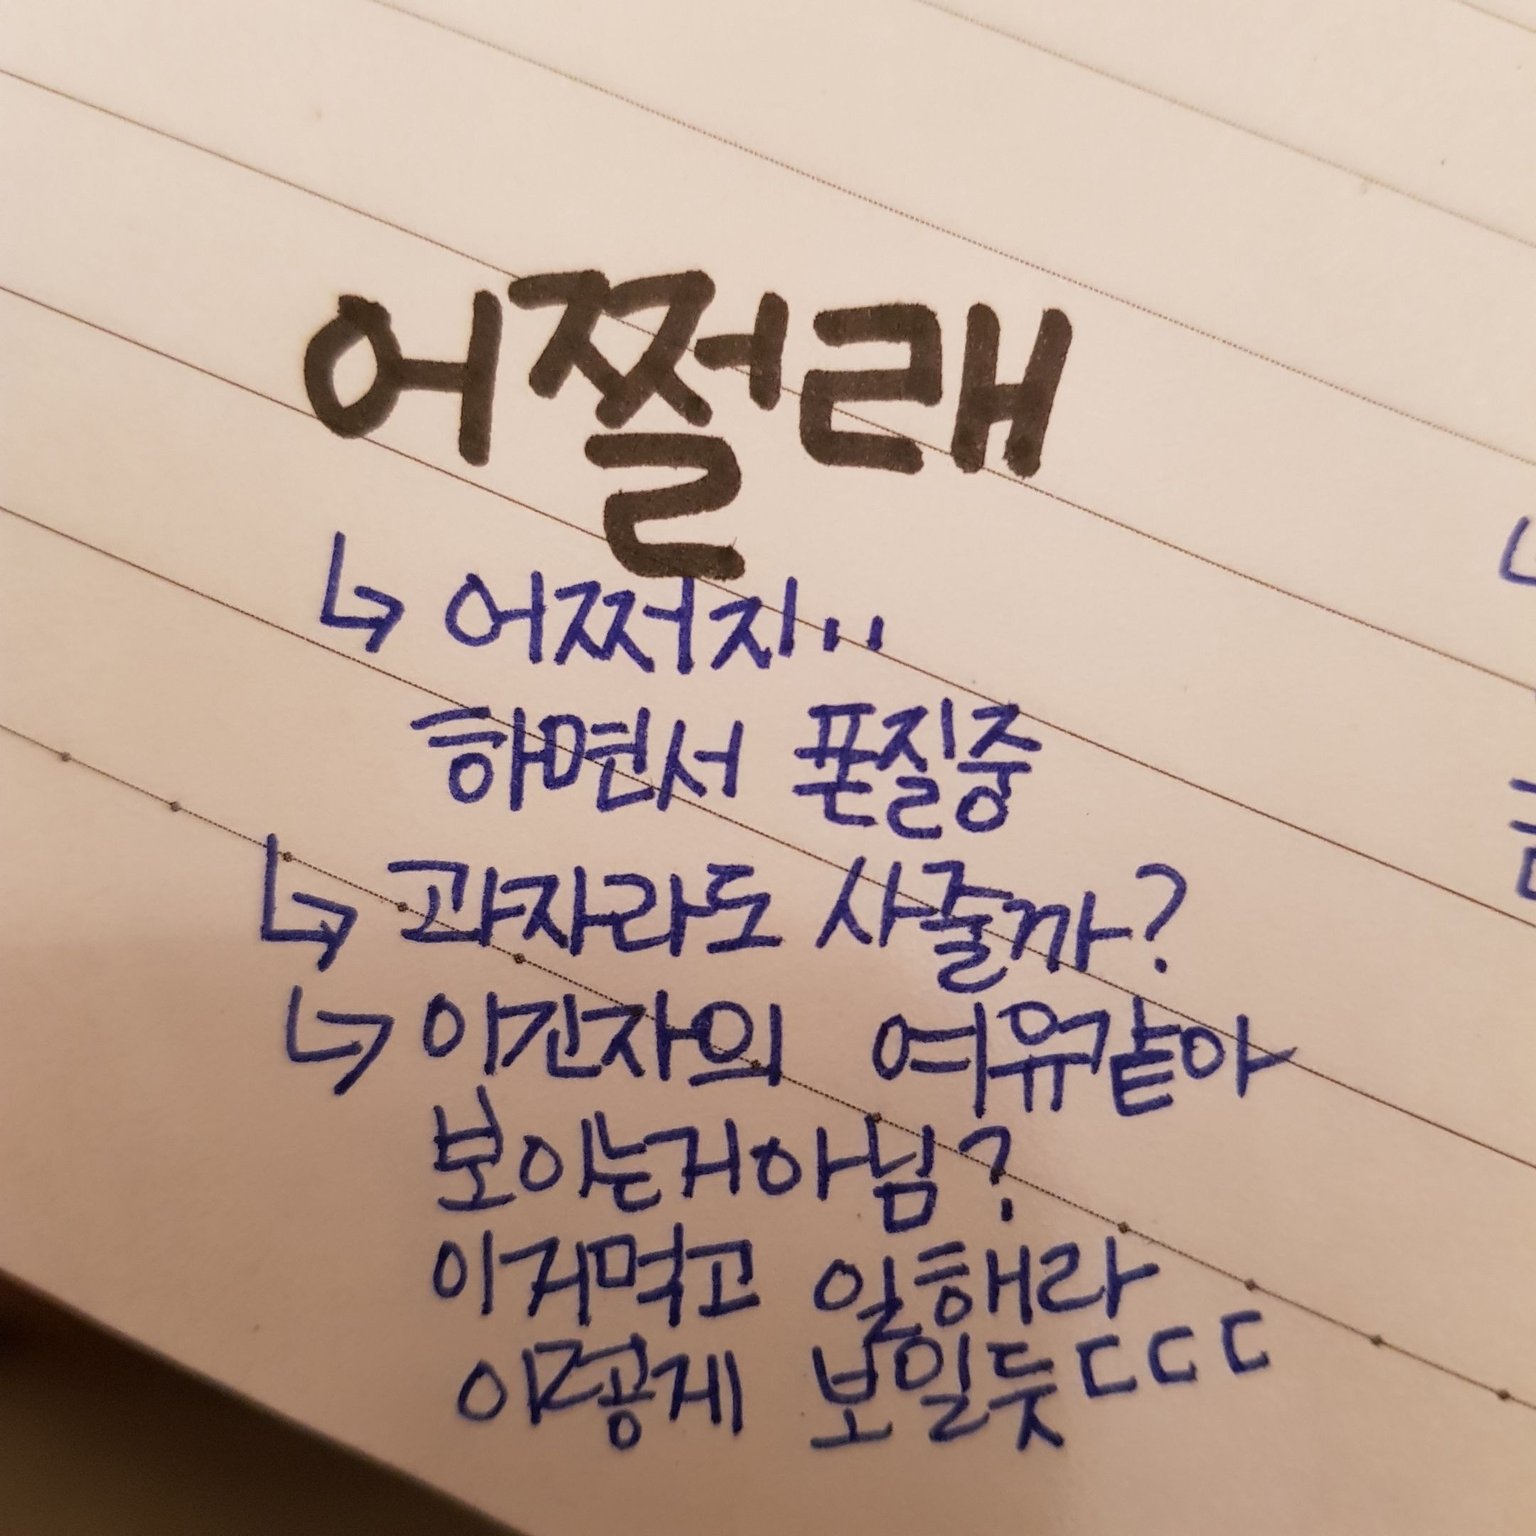 어쩔래
↳ 어쩌지..
하면서 폰질중
↳ 과자라도 사줄까?
↳ 있간자의 여유같아
보이는거아님?
이거먹고 일해라
이런게 보일듯ㄷㄷㄷ